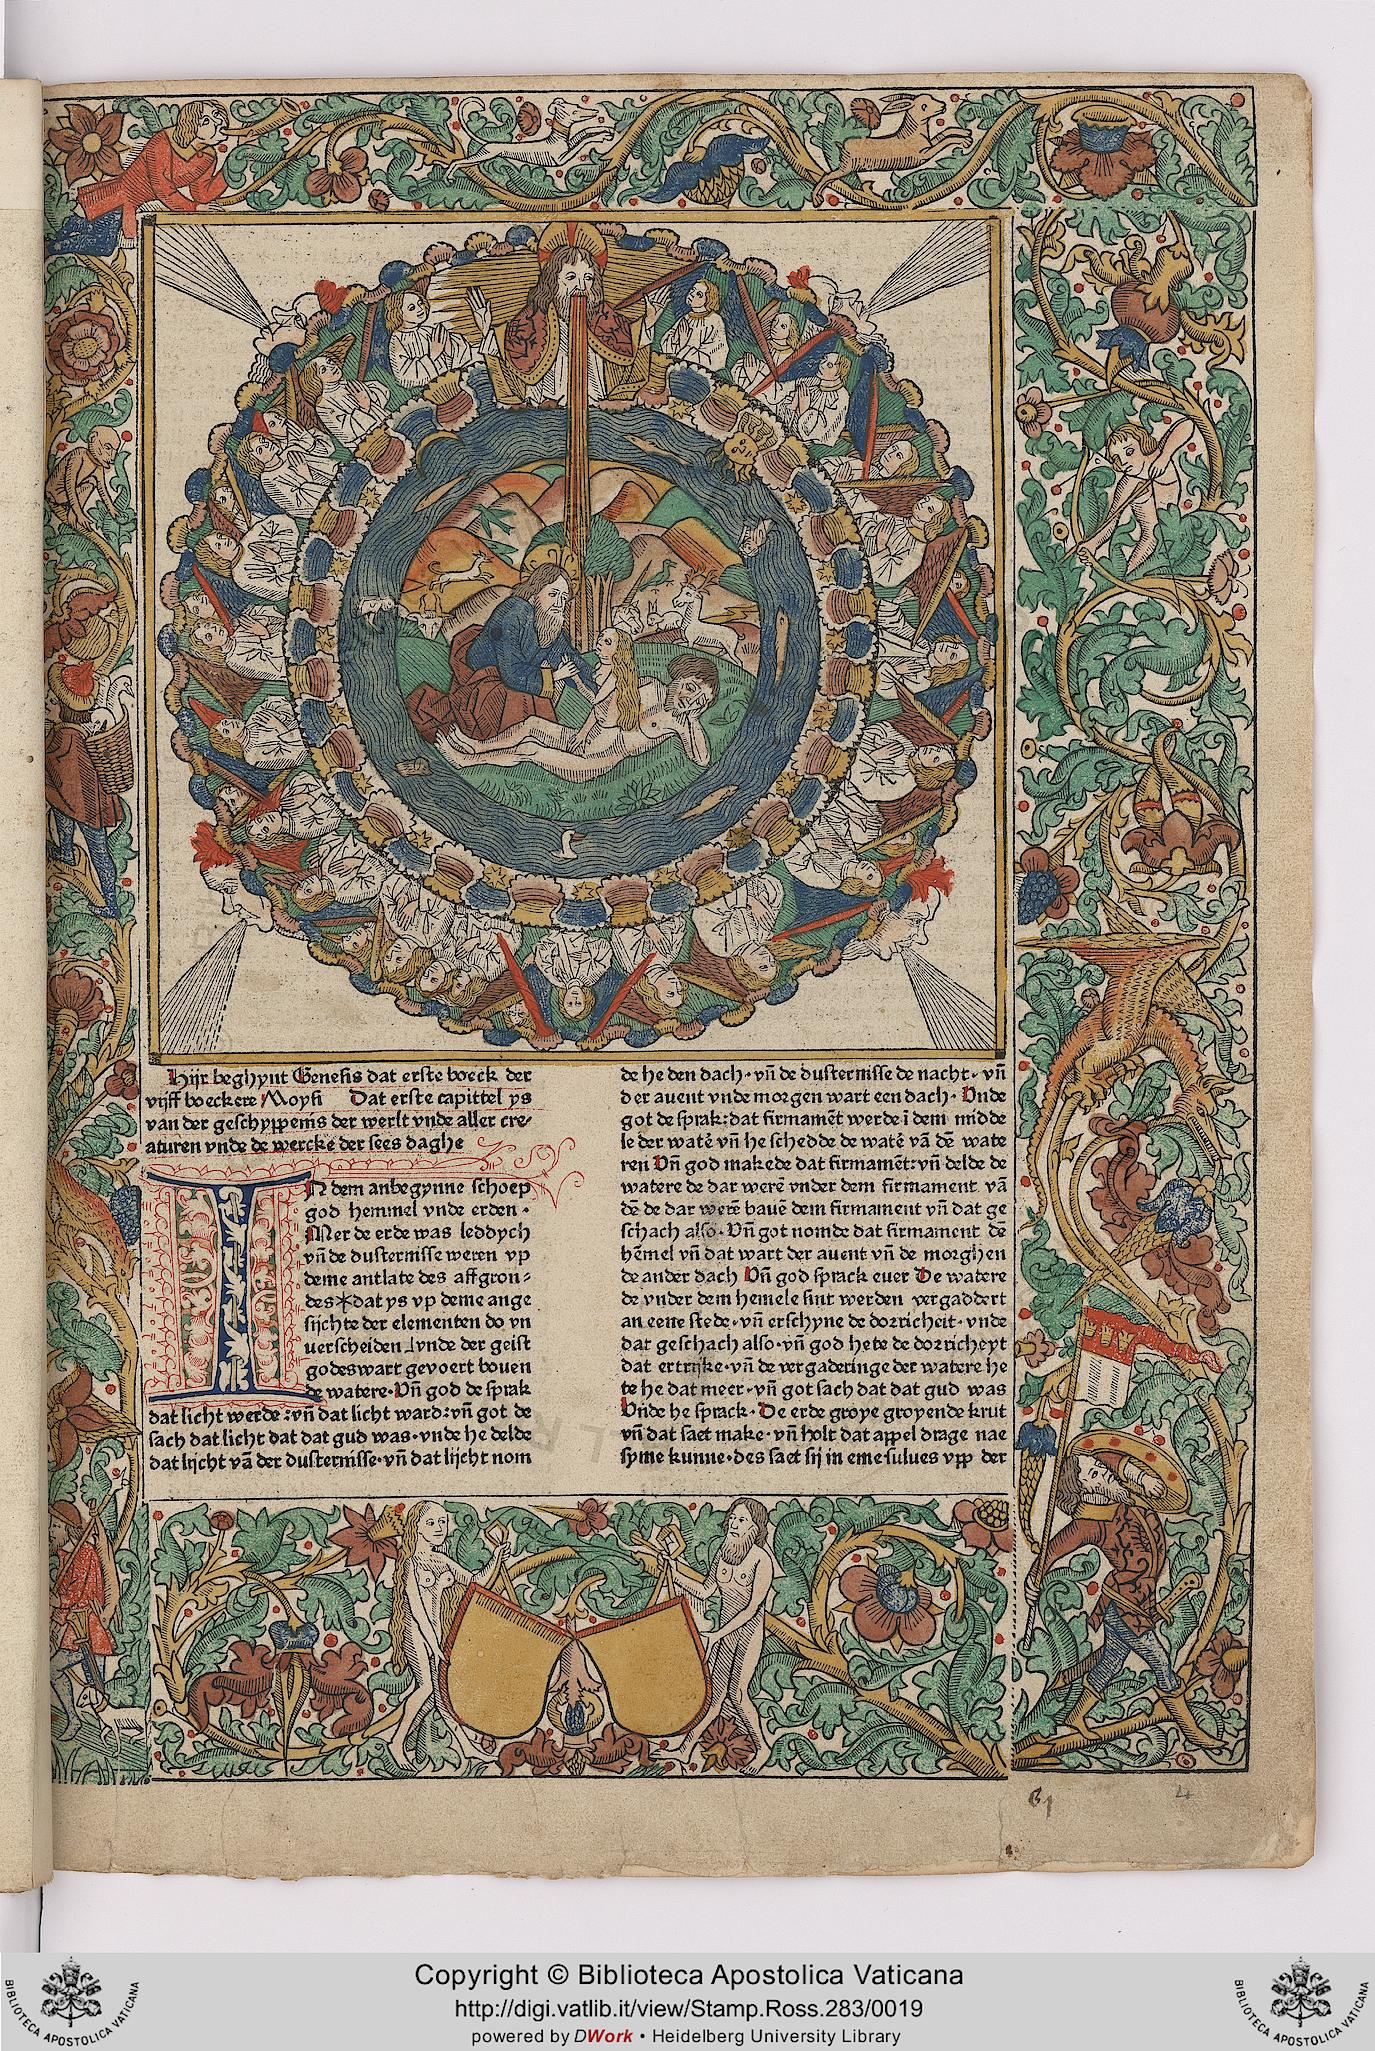 Hijr beghynt Genesis dat erste boeck der
vyff boeckere Moysi Dat erste capittel ys
van der geschyppenis der werlt vnde aller cre⸗
aturen vnde de wercke der sees daghe
IN dem anbegynne schoep
god hemmel vnde erden ·
Mer de erde was leddych
vn̄ de dusternisse weren vp
deme antlate des affgron⸗
des * dat ys vp deme ange
sijchte der elementen do vn
uerscheiden ⅃ vnde der geist
godes wart gevoert bouen
de watere · Vn̄ god de sprak
dat licht werde : vn̄ dat licht ward : vn̄ got de
sach dat licht dat dat gud was · vnde he delde
dat lijcht vā der dusternisse · vn̄ dat lijcht nom
de he den dach · vn̄ de dusternisse de nacht · vn̄
der auent vnde morgen wart een dach · Vnde
got de sprak : dat firmamēt werde ī dem midde
le der watē vn̄ he schedde de watē vā dē wate
ren Vn̄ god makede dat firmamēt : vn̄ delde de
watere de dar werē vnder dem firmament vā
dē de dar werē bauē dem firmament vn̄ dat ge
schach also · Vn̄ got nomde dat firmament dē
hēmel vn̄ dat wart der auent vn̄ de morghen
de ander dach Vn̄ god sprack euer De watere
de vnder dem hemele sint werden vergaddert
an eene stede · vn̄ erschyne de dorricheit · vnde
dat geschach also · vn̄ god hete de dorricheyt
dat ertrijke · vn̄ de vergaderinge der watere he
te he dat meer · vn̄ got sach dat dat gud was
Vnde he sprack · De erde groye groyende krut
vn̄ dat saet make · vn̄ holt dat appel drage nae
syme kunne · des saet sij in eme sulues vpp der
4
Copyright © Biblioteca Apostolica Vaticana
http://digi.vatlib.it/view/Stamp.Ross.283/0019
powered by DWork • Heidelberg University Library
BIBLIOTECA APOSTOLICA VATICANA
BIBLIOTECA APOSTOLICA VATICANA